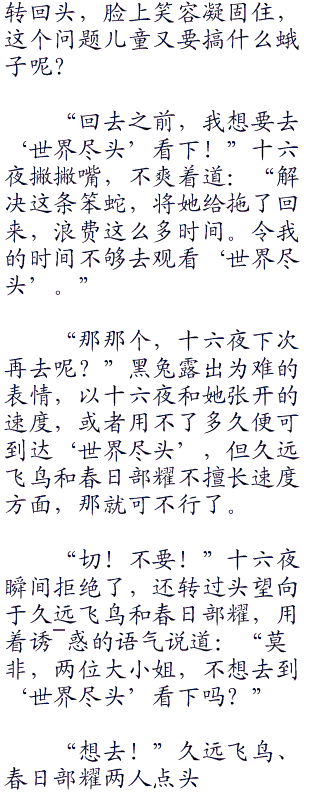 转回头，脸上笑容凝固住，
这个问题儿童又要搞什么蛾
子呢？
“回去之前，我想要去
‘世界尽头’看下！”十六
夜撇撇嘴，不爽着道：“解
决这条笨蛇，将她给拖了回
来，浪费这么多时间。令我
的时间不够去观看‘世界尽
头’。”
“那那个，十六夜下次
再去呢？”黑兔露出为难的
表情，以十六夜和她张开的
速度，或者用不了多久便可
到达‘世界尽头’，但久远
飞鸟和春日部耀不擅长速度
方面，那就可不行了。
“切！不要！”十六夜
瞬间拒绝了，还转过头望向
于久远飞鸟和春日部耀，用
着诱¯惑的语气说道：“莫
非，两位大小姐，不想去到
‘世界尽头’看下吗？”
“想去！”久远飞鸟、
春日部耀两人点头